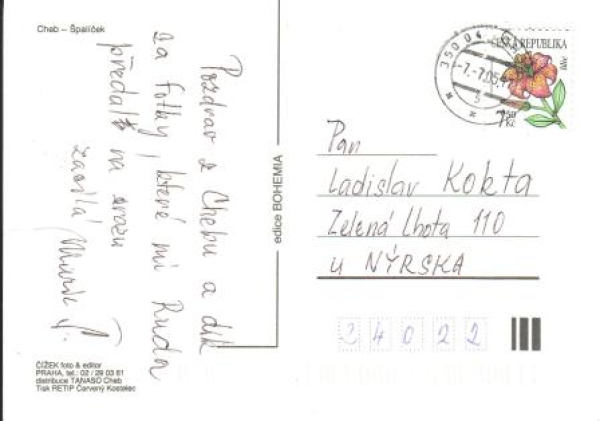 Cheb – Špalíček
Pozdrav z Chebu a dík
za fotky, které mi Ruda
předal na srazu
zasílá
edice BOHEMIA
ČESKÁ REPUBLIKA
7,50
Kč
350 04
-7.-7.05
Pan
Ladislav Kokta
Zelená Lhota 110
u NÝRSKA
34022
ČÍŽEK foto & editor
PRAHA, tel.: 02 / 29 03 61
distribuce TANASO Cheb
Tisk RETIP Červený Kostelec